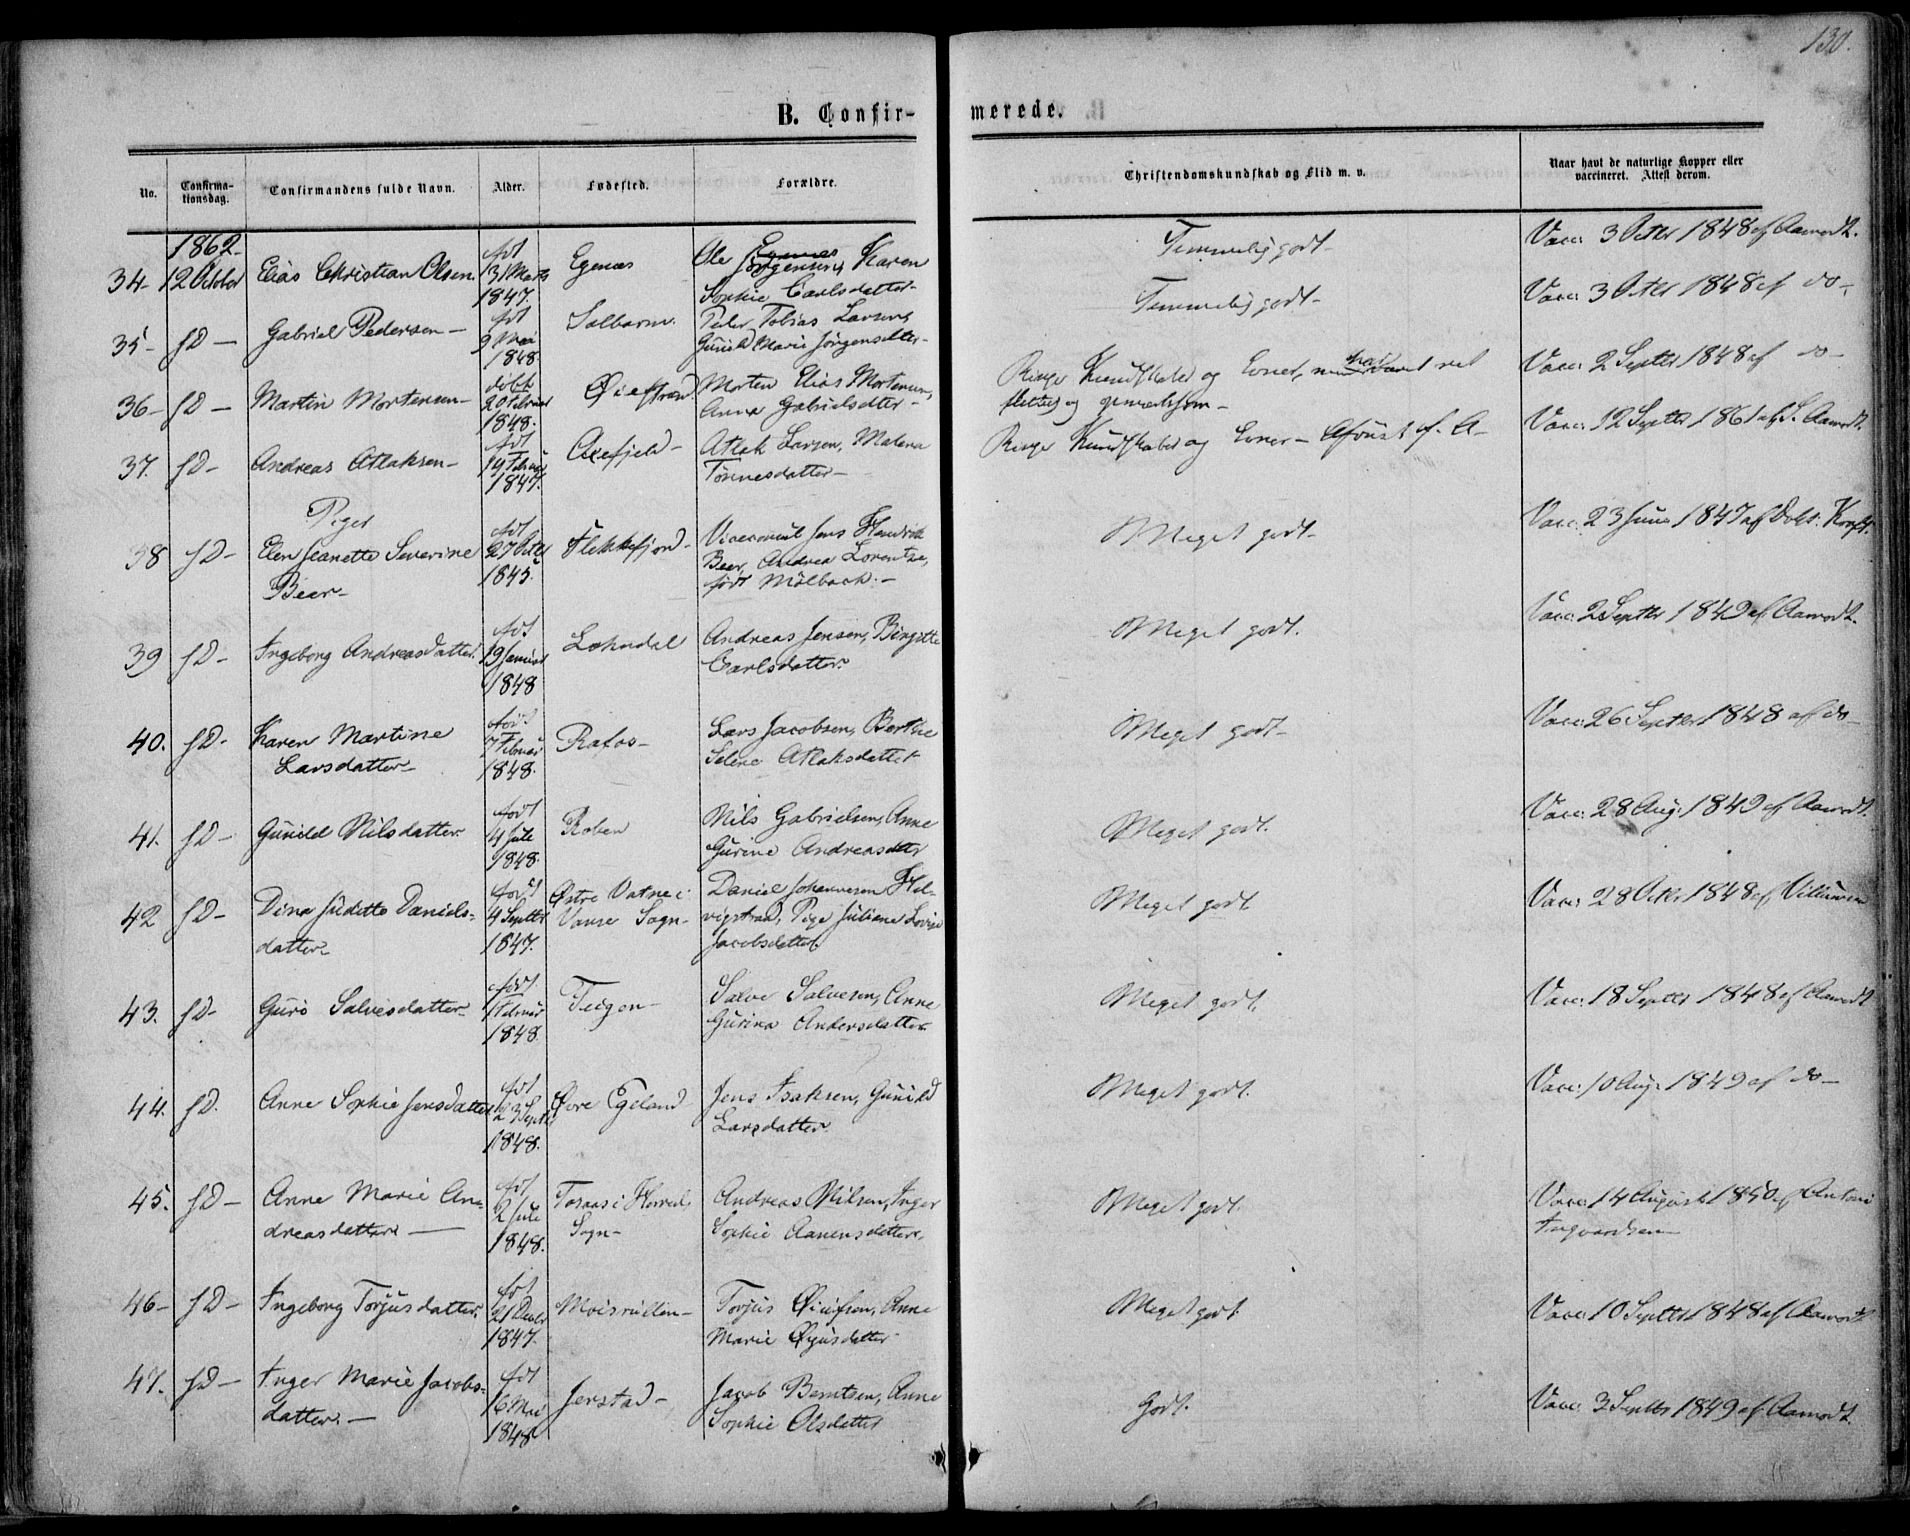 130.
B. Confirmerede.
No. Confirmationsdag. Confirmandens fulde Navn. Alder. Fødested. Forældre. Christendomskundskab og Flid m. v. Naar havt de naturlige Kopper eller vaccineret. Attest derom.
1862
34- 12 October Elias Christian Olsen født 13 Marts 1847. Egenæs Ole Jørgensen Egenæs, Karen Sophie Carlsdatter- Temmelig godt- Vacc: 3 Octbr 1848 af Aamodt.
35- sD- Gabriel Pedersen- født 9 Mai 1848. Solbarm. Peder Tobias Larsen, Gunild Marie Jørgensdtter- Temmelig godt- Vacc: 3 Octbr 1848 af do-
36- sD- Martin Mortensen- døbt 20 Februar 1848. Øiestrand Morten Elias Mortensen, Anna Gabrielsdtter- Ringe Kundskaber og Evner, men har været ret flittig og opmærksom- Vacc: 2 Septbr 1848 af do-
37. sD- Andreas Atlaksen- født 19 Februar 1847. Axefjeld- Atlak Larsen, Malena Tønnesdatter- Ringe Kundskaber og Evner- Vacc: 12 Septbr 1861 af S. Aamodt.
Piger
38 sD- Elen Jeanette Severine Beer- født 27 Octbr 1845. Flekkefjord- Viceconsul Jens Hendrik Beer, Andrea Lorentze, født Mølbach.- Meget godt- Vacc: 23 Juni 1847 af Doct: Kraft.
39 sD- Ingeborg Andreasdatter. født 19 Januar 1848 Lohndal Andreas Jensen, Birgitte Carlsdatter. Meget godt. Vacc: 2 Septbr 1849 af Aamodt.
40. sD- Karen Martine Larsdatter- født 7 Februar 1848. Rafos- Lars Jacobsen, Berthe Selene Atlaksdatter Meget godt- Vacc: 26 Septbr 1848 af do-
41. sD- Gunild Nilsdatter. født 4 Juli 1848. Roben Nils Gabrielsen, Anne Gurine Andreasdtter Meget godt. Vacc: 28 Aug. 1849 af Aamodt.
42 sD- Dina Juditte Danielsdatter- født 4 Septbr 1847. Østre Vatne i Vanse Sogn- Daniel Johannesen Helvigstrad, Pige Juliane Lovise Jacobsdatter. Meget godt Vacc: 28 Octbr 1848 af Villumsen
43. sD- Guro Salvesdatter- født 1 Februar 1848. Teigen- Salve Salvesen, Anne Gurina Andersdatter. Meget godt. Vacc: 18 Septbr 1848 af Aamodt
44. sD. Anne Sophie Jensdatter født 23 Septbr 1848. Øvre Egeland Jens Isaksen, Gunild Larsdatter. Meget godt. Vacc: 10 Aug. 1849 af do-
45. sD- Anne Marie Andreasdatter- født 2 Juli 1848. Tosaas i Herred Sogn- Andreas Nilsen, Inger Sophie Aanensdatter. Meget godt. Vacc: 14 August 1850 af Antoni Ingvardsen
46- sD- Ingeborg Torjusdatter. født 21 Decbr 1847. Moisrudlen- Torjus Øiufsen, Anne Marie Øyusdatter- Meget godt Vacc: 10 Septbr 1848 af Aamodt
47. sD- Inger Marie Jacobsdatter.- født 16 Mai 1848 Jerstad- Jacob Berntsen, Anne Sophie Olsdatter Godt. Vacc: 3 Septbr 1849 af Aamodt.